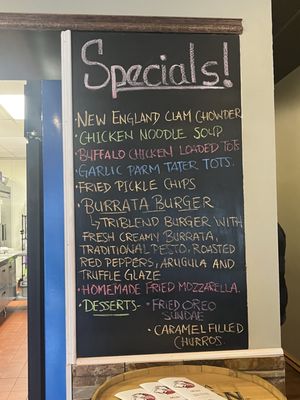 Specials!
• New England Clam Chowder
• Chicken Noodle Soup
• Buffalo Chicken Loaded Tots
• Garlic Parm Tater Tots.
• Fried Pickle Chips
• Burrata Burger
↳ Triblend Burger with
Fresh Creamy Burrata,
Traditional Pesto, Roasted
Red Peppers, Arugula and
Truffle Glaze
• Homemade Fried Mozzarella.
• Desserts - • Fried Oreo
Sundae
• Caramel Filled
Churros.